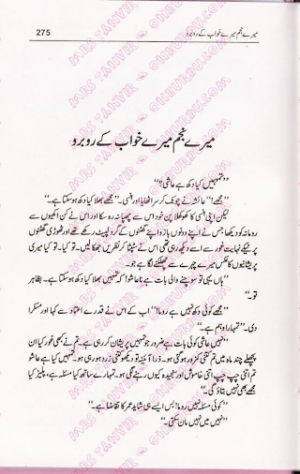 275
میرے نجم میرے خواب کے روبرو
میرے نجم میرے خواب کے روبرو
"تمہیں کیا دکھ ہے عاشی؟"
"مجھے؟" عائشہ نے چونک کر سر اٹھایا اور ہنسی۔ "مجھے بھلا کیا دکھ ہو سکتا ہے۔"
لیکن اپنی ہنسی کا کھوکھلا پن خود اس سے چھپا نہ رہ سکا اور اس نے کن اکھیوں سے
رومانہ کو دیکھا جس نے اپنے دونوں بازو اپنے گھٹنوں کے گرد لپیٹ رکھے تھے اور ٹھوڑی گھٹنوں
پر ٹکائے نہایت غور سے اسے دیکھ رہی تھی اس نے سٹپٹا کر نظریں جھکا لیں۔ تو کیا۔ تو کیا میری
پریشانیوں کا عکس میرے چہرے سے جھلکنے لگا ہے۔
"ہاں یہی تو سوچنے والی بات ہے نا عاشو! کہ تمہیں بھلا کیا دکھ ہو سکتا ہے۔ بظاہر
تو۔"
"مجھے کوئی دکھ نہیں ہے روما!" اب اس نے قدرے اعتماد سے کہا اور مسکرا
دی۔ "تمہارا وہم ہے۔"
"نہیں عاشی کوئی بات ہے ضرور جو تمہیں پریشان کر رہی ہے۔ تم نے کبھی غور کیا ان
پچھلے چند ماہ میں تم کتنی کمزور ہو گئی ہو۔ ذرا آئینہ تو دیکھو کتنی زرد ہو رہی ہو۔ تمہیں کیا ہے عاشو
تم اتنی چپ چپ، اتنی خاموش اور سنجیدہ کیوں رہنے لگی ہو۔ تمہارے ساتھ کیا مسئلہ ہے، پلیز کیا
مجھے بھی نہیں بتاؤ گی۔"
"کوئی مسئلہ نہیں روما! بس ایسے ہی شاید عمر کا تقاضا ہے۔"
"میں نہیں مان سکتی۔"